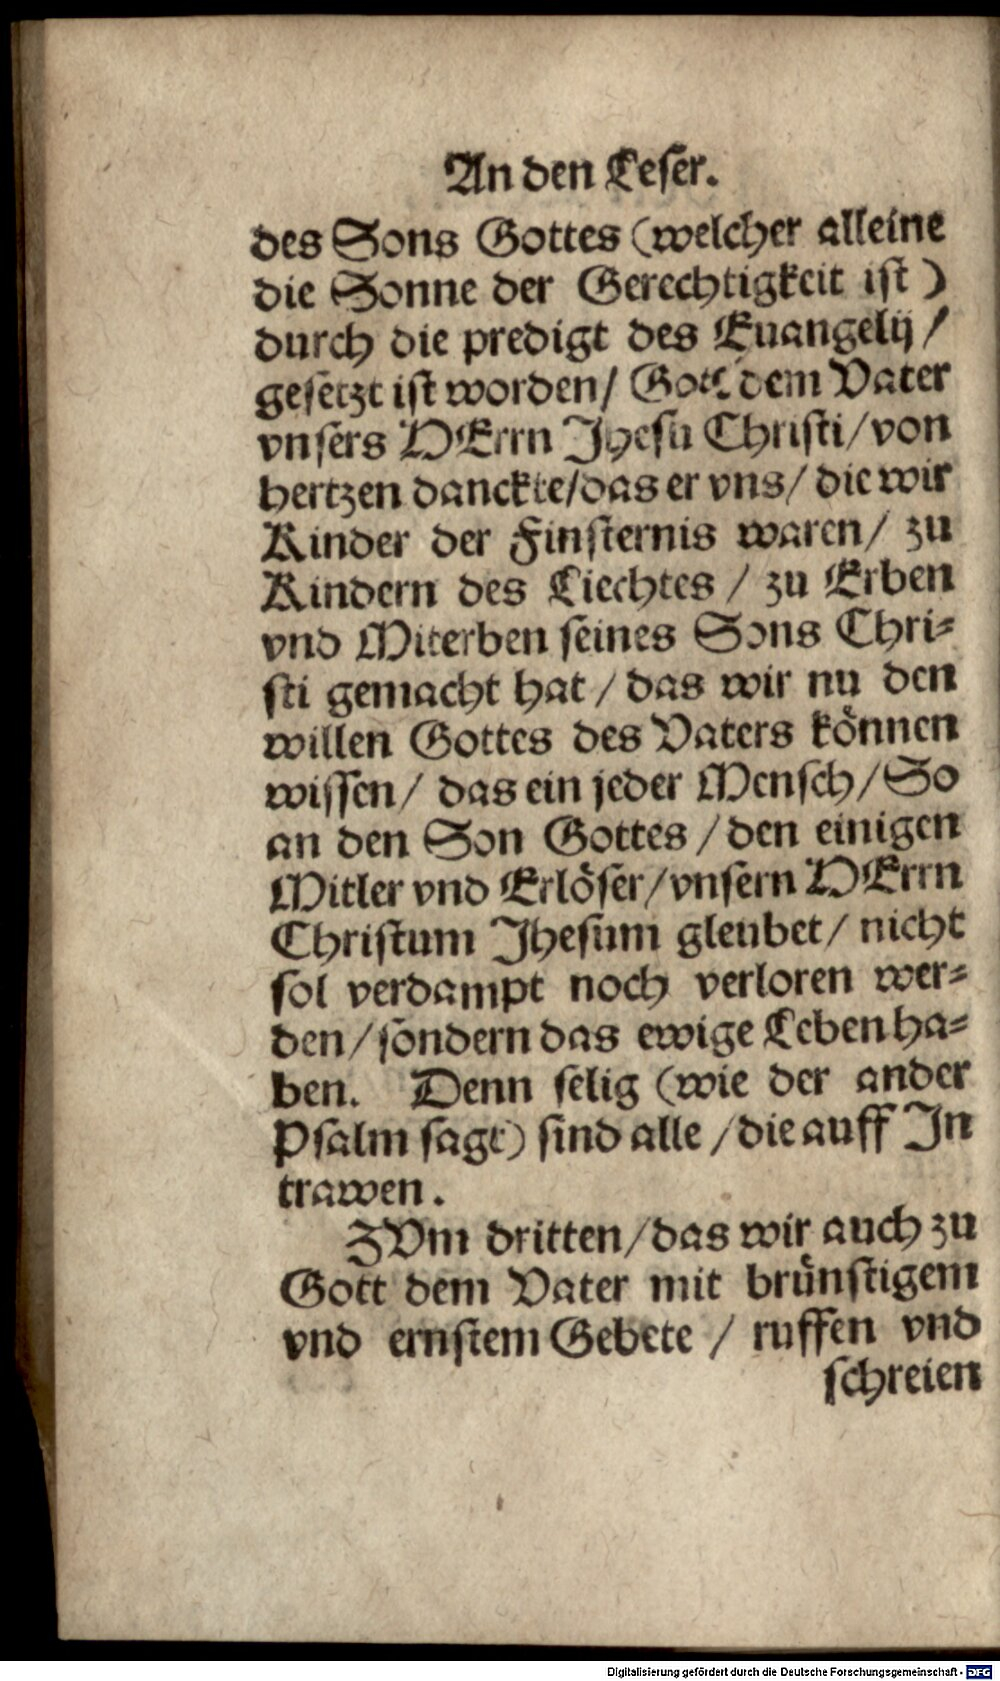 An den Leser.
des Sons Gottes (welcher alleine
die Sonne der Gerechtigkeit ist)
durch die predigt des Euangelij /
gesetzt ist worden / Gott dem Vater
vnsers HErrn Jhesu Christi / von
hertzen danckte / das er vns / die wir
Kinder der Finsternis waren / zu
Kindern des Liechtes / zu Erben
vnd Miterben seines Sons Chri⸗
sti gemacht hat / das wir nu den
willen Gottes des Vaters können
wissen / das ein jeder Mensch / So
an den Son Gottes / den einigen
Mitler vnd Erlöser / vnsern HErrn
Christum Jhesum gleubet / nicht
sol verdampt noch verloren wer⸗
den / sondern das ewige Leben ha⸗
ben. Denn selig (wie der ander
Psalm sagt) sind alle / die auff Jn
trawen.
ZVm dritten / das wir auch zu
Gott dem Vater mit brünstigem
vnd ernstem Gebete / ruffen vnd
schreien
Digitalisierung gefördert durch die Deutsche Forschungsgemeinschaft - DFG